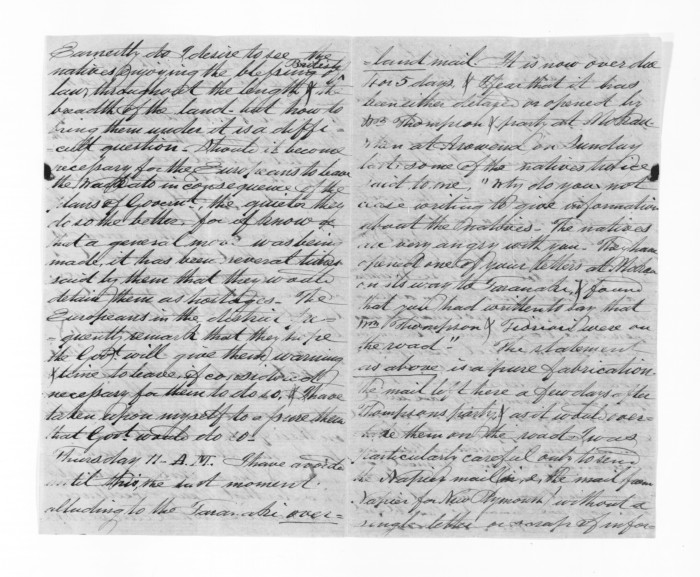 Earnestly do I desire to see the
natives enjoying the blessing of British
law, throughout the length & the
breadth of the land but how to
bring them under it is a diffi-
cult question. Should it become
necessary for the Europeans to leave
the Waikato in consequence of the
plans of Govmt. the quieter they
do so the better for if known
that a general move was being
made, it has been several times
said by them that they would
detain them as hostages. The
Europeans in the district fre-
quently remark that they hope
the Govt. will give them warning
& time to leave if considered
necessary for them to do so, & I have
taken upon myself to assure them
that Govt. would do so.
Thursday 11. A.M. I have avoided
until this, the last moment
alluding to the Taranaki over-
land mail. It is now over due
4 or 5 days. & I fear that it has
been either delayed or opened by
Wm Thompson & party at
When at Arowena on Sunday
last some of the natives twice
said to me, "Why do you not
cease writing to give information
about the Maories. The natives
are very angry with you. They have
opened one of your letters at
on its way to Taranaki, & found
that you had written to say that
Wm Thompson & were on
the road." The statement
as above is a pure fabrication
the mail left here a few days after
Thompsons party, & as it would over-
take them on the road I was
particularly careful not to send
the Napier mail or the mail from
Napier for New Plymouth without a
single letter or scrap of infor-